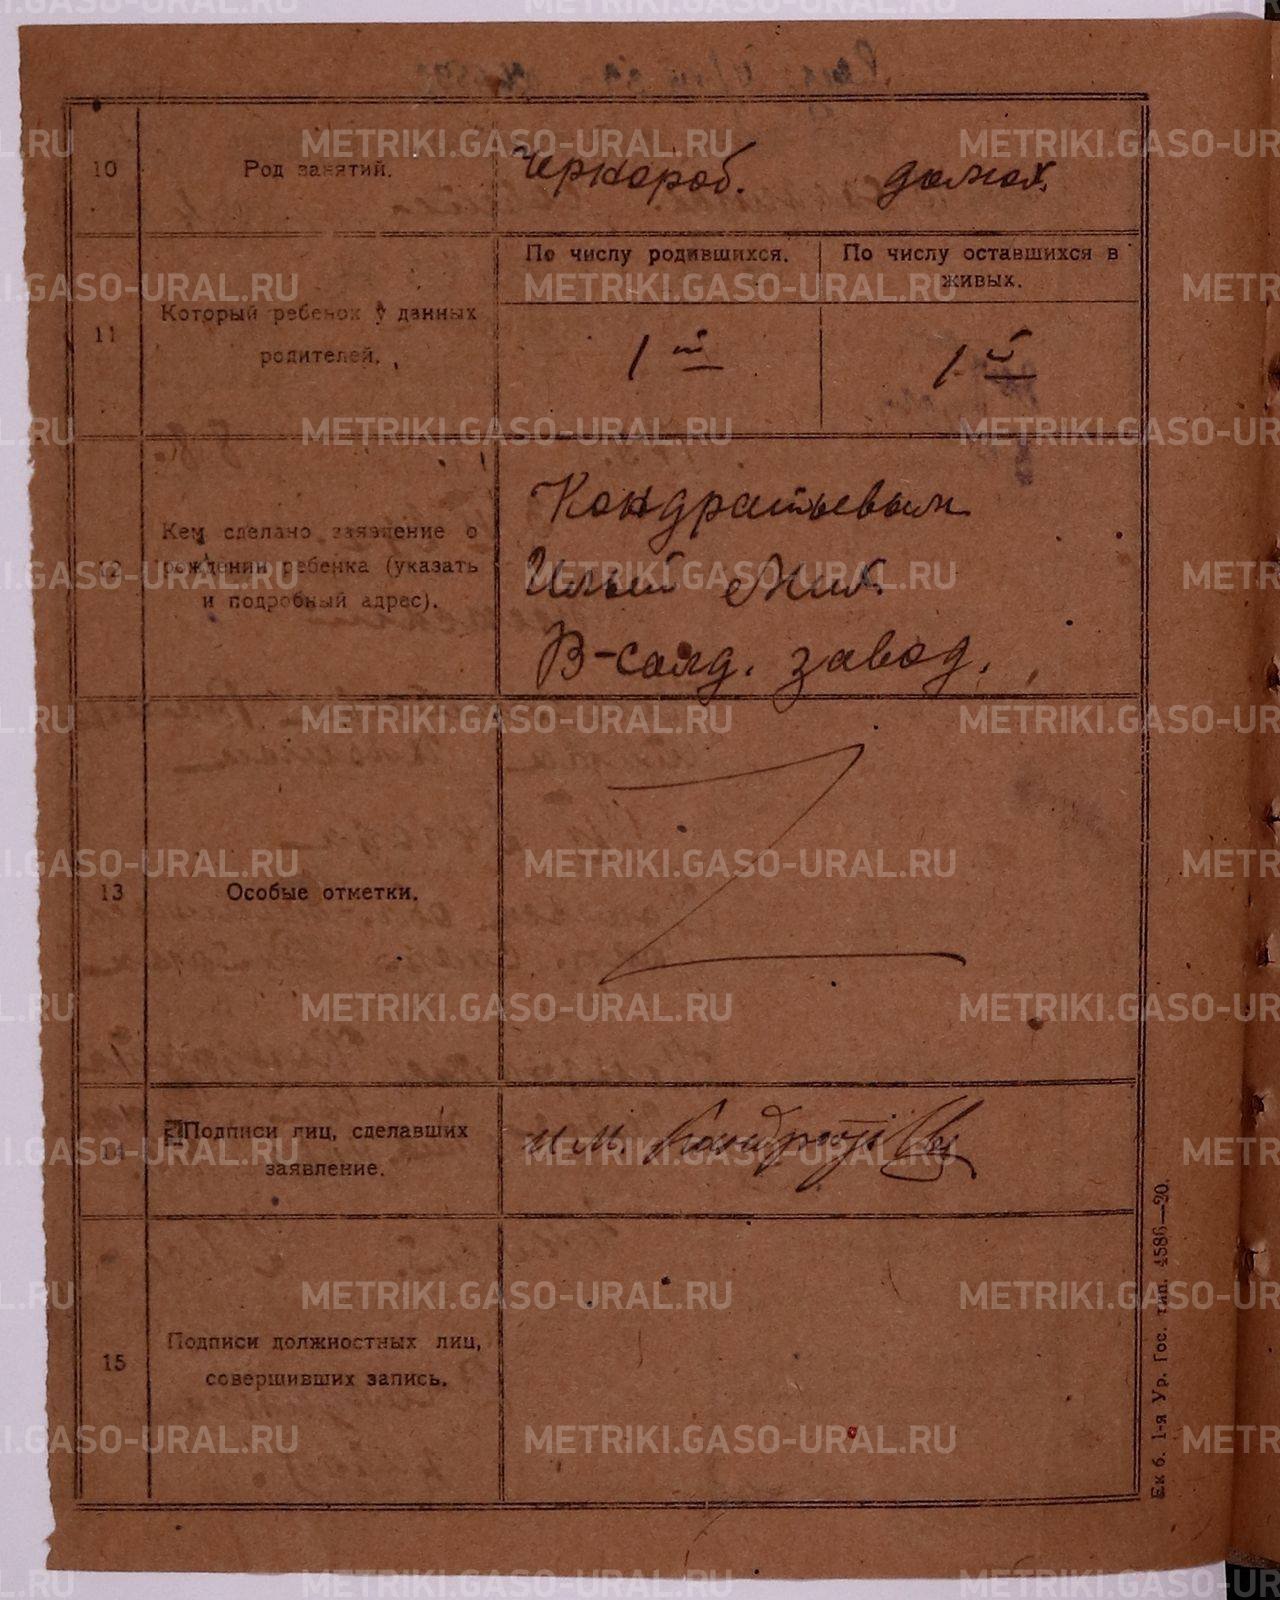 10 Род занятий. Чернораб. домох.
По числу родившихся. По числу оставшихся в живых.
11 Который ребенок у данных
родителей.
1й 1й
Кондратьевым
12 Кем сделано заявление о
рождении ребенка (указать
и подробный адрес).
Ильей Мих.
В-салд. завод.
13 Особые отметки.
14 Подписи лиц, сделавших
заявление.
И М. Кондратьев
15 Подписи должностных лиц,
совершивших запись.
Ек б. 1-я Ур. Гос. тип. 4586—20.
METRIKI.GASO-URAL.RU